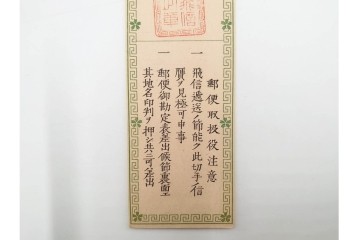 郵便取扱役注意
一 飛信逓送ノ節能ク此切手ノ信
贋ヲ見極可申事
一 郵便御勘定表差出候節裏面ヱ
其地名印判ヲ押シ共ニ可差出